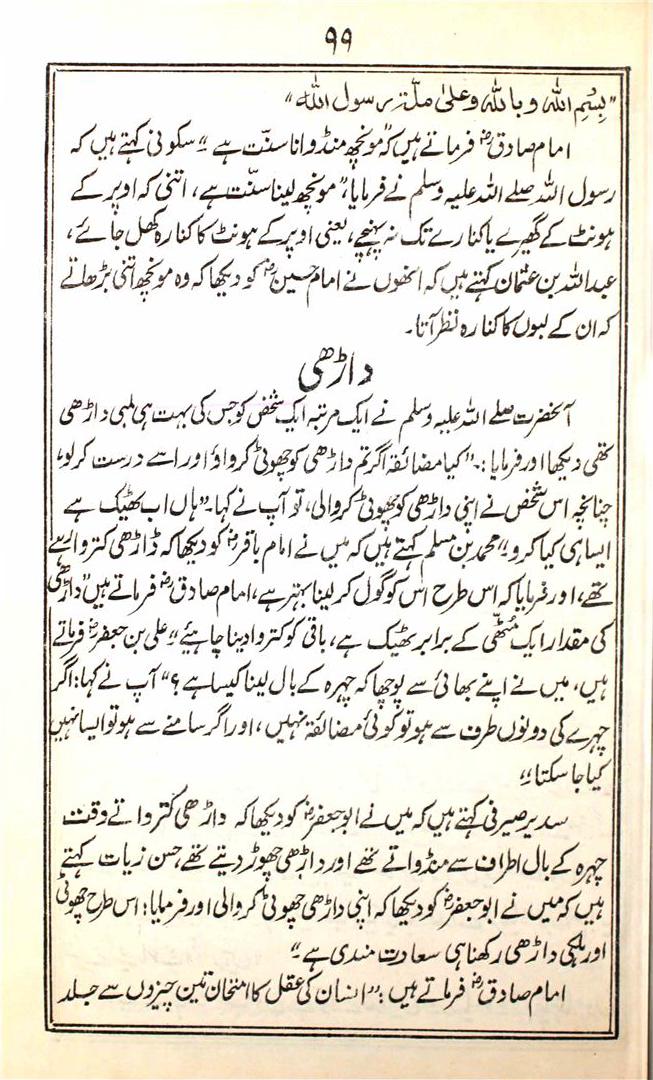 ۹۹
"بِسْمِ اللہ و باللہ وعلیٰ ملّۃ رسول اللہ"
امام صادقؓ فرماتے ہیں کہ "مونچھ منڈوانا سنّت ہے"۔ سکونی کہتے ہیں کہ
رسول اللہ صلے اللہ علیہ وسلم نے فرمایا، "مونچھ لینا سنّت ہے، اتنی کہ اوپر کے
ہونٹ کے گھیرے یا کنارے تک نہ پہنچے، یعنی اوپر کے ہونٹ کا کنارہ کھل جائے،
عبداللہ بن عثمان کہتے ہیں کہ انھوں نے امام حسینؓ کو دیکھا کہ وہ مونچھ اتنی بڑھاتے
کہ ان کے لبوں کا کنارہ نظر آتا۔
داڑھی
آنحضرت صلے اللہ علیہ وسلم نے ایک مرتبہ ایک شخص کو جس کی بہت ہی لمبی داڑھی
تھی دیکھا اور فرمایا:۔ "کیا مضائقہ اگر تم داڑھی کو چھوٹی کرواؤ اور اسے درست کرلو،
چنانچہ اس شخص نے اپنی داڑھی کو چھوٹی کروالی، تو آپ نے کہا۔ "ہاں اب ٹھیک ہے
ایسا ہی کیا کرو"۔ محمد بن مسلم کہتے ہیں کہ میں نے امام باقرؓ کو دیکھا کہ ڈاڑھی کتروا رہے
تھے، اور فرمایا کہ اس طرح اس کو گول کر لینا بہتر ہے، امام صادقؓ فرماتے ہیں "داڑھی
کی مقدار ایک مُٹھّی کے برابر ٹھیک ہے، باقی کو کتروا دینا چاہیئے"۔ علی بن جعفرؓ فرماتے
ہیں، میں نے اپنے بھائی سے پوچھا کہ چہرہ کے بال لینا کیسا ہے؟" آپ نے کہا: اگر
چہرے کی دونوں طرف سے ہو تو کوئی مضائقہ نہیں، اور اگر سامنے سے ہو تو ایسا نہیں
کیا جا سکتا"،
سدیر صیرفی کہتے ہیں کہ میں نے ابو جعفرؓ کو دیکھا کہ داڑھی کترواتے وقت
چہرہ کے بال اطراف سے منڈواتے تھے اور داڑھی چھوڑ دیتے تھے، حسن زیات کہتے
ہیں کہ میں نے ابو جعفرؓ کو دیکھا کہ اپنی داڑھی چھوٹی کروالی اور فرمایا: اس طرح چھوٹی
اور ہلکی داڑھی رکھنا ہی سعادت مندی ہے۔"
امام صادقؓ فرماتے ہیں: "انسان کی عقل کا امتحان تین چیزوں سے جلد